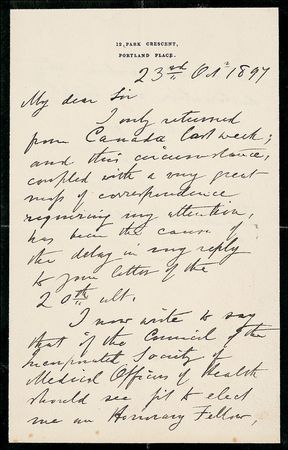 12, PARK CRESCENT,
PORTLAND PLACE.
23rd Octr 1897
My dear Sir
I only returned
from Canada last week;
and this circumstance,
coupled with a very great
mass of correspondence
requiring my attention,
has been the cause of
the delay in my reply
to your letter of the
20th ult.
I now write to say
that if the Council of the
Incorporated Society of
Medical Officers of Health
should see fit to elect
me an Honorary Fellow,